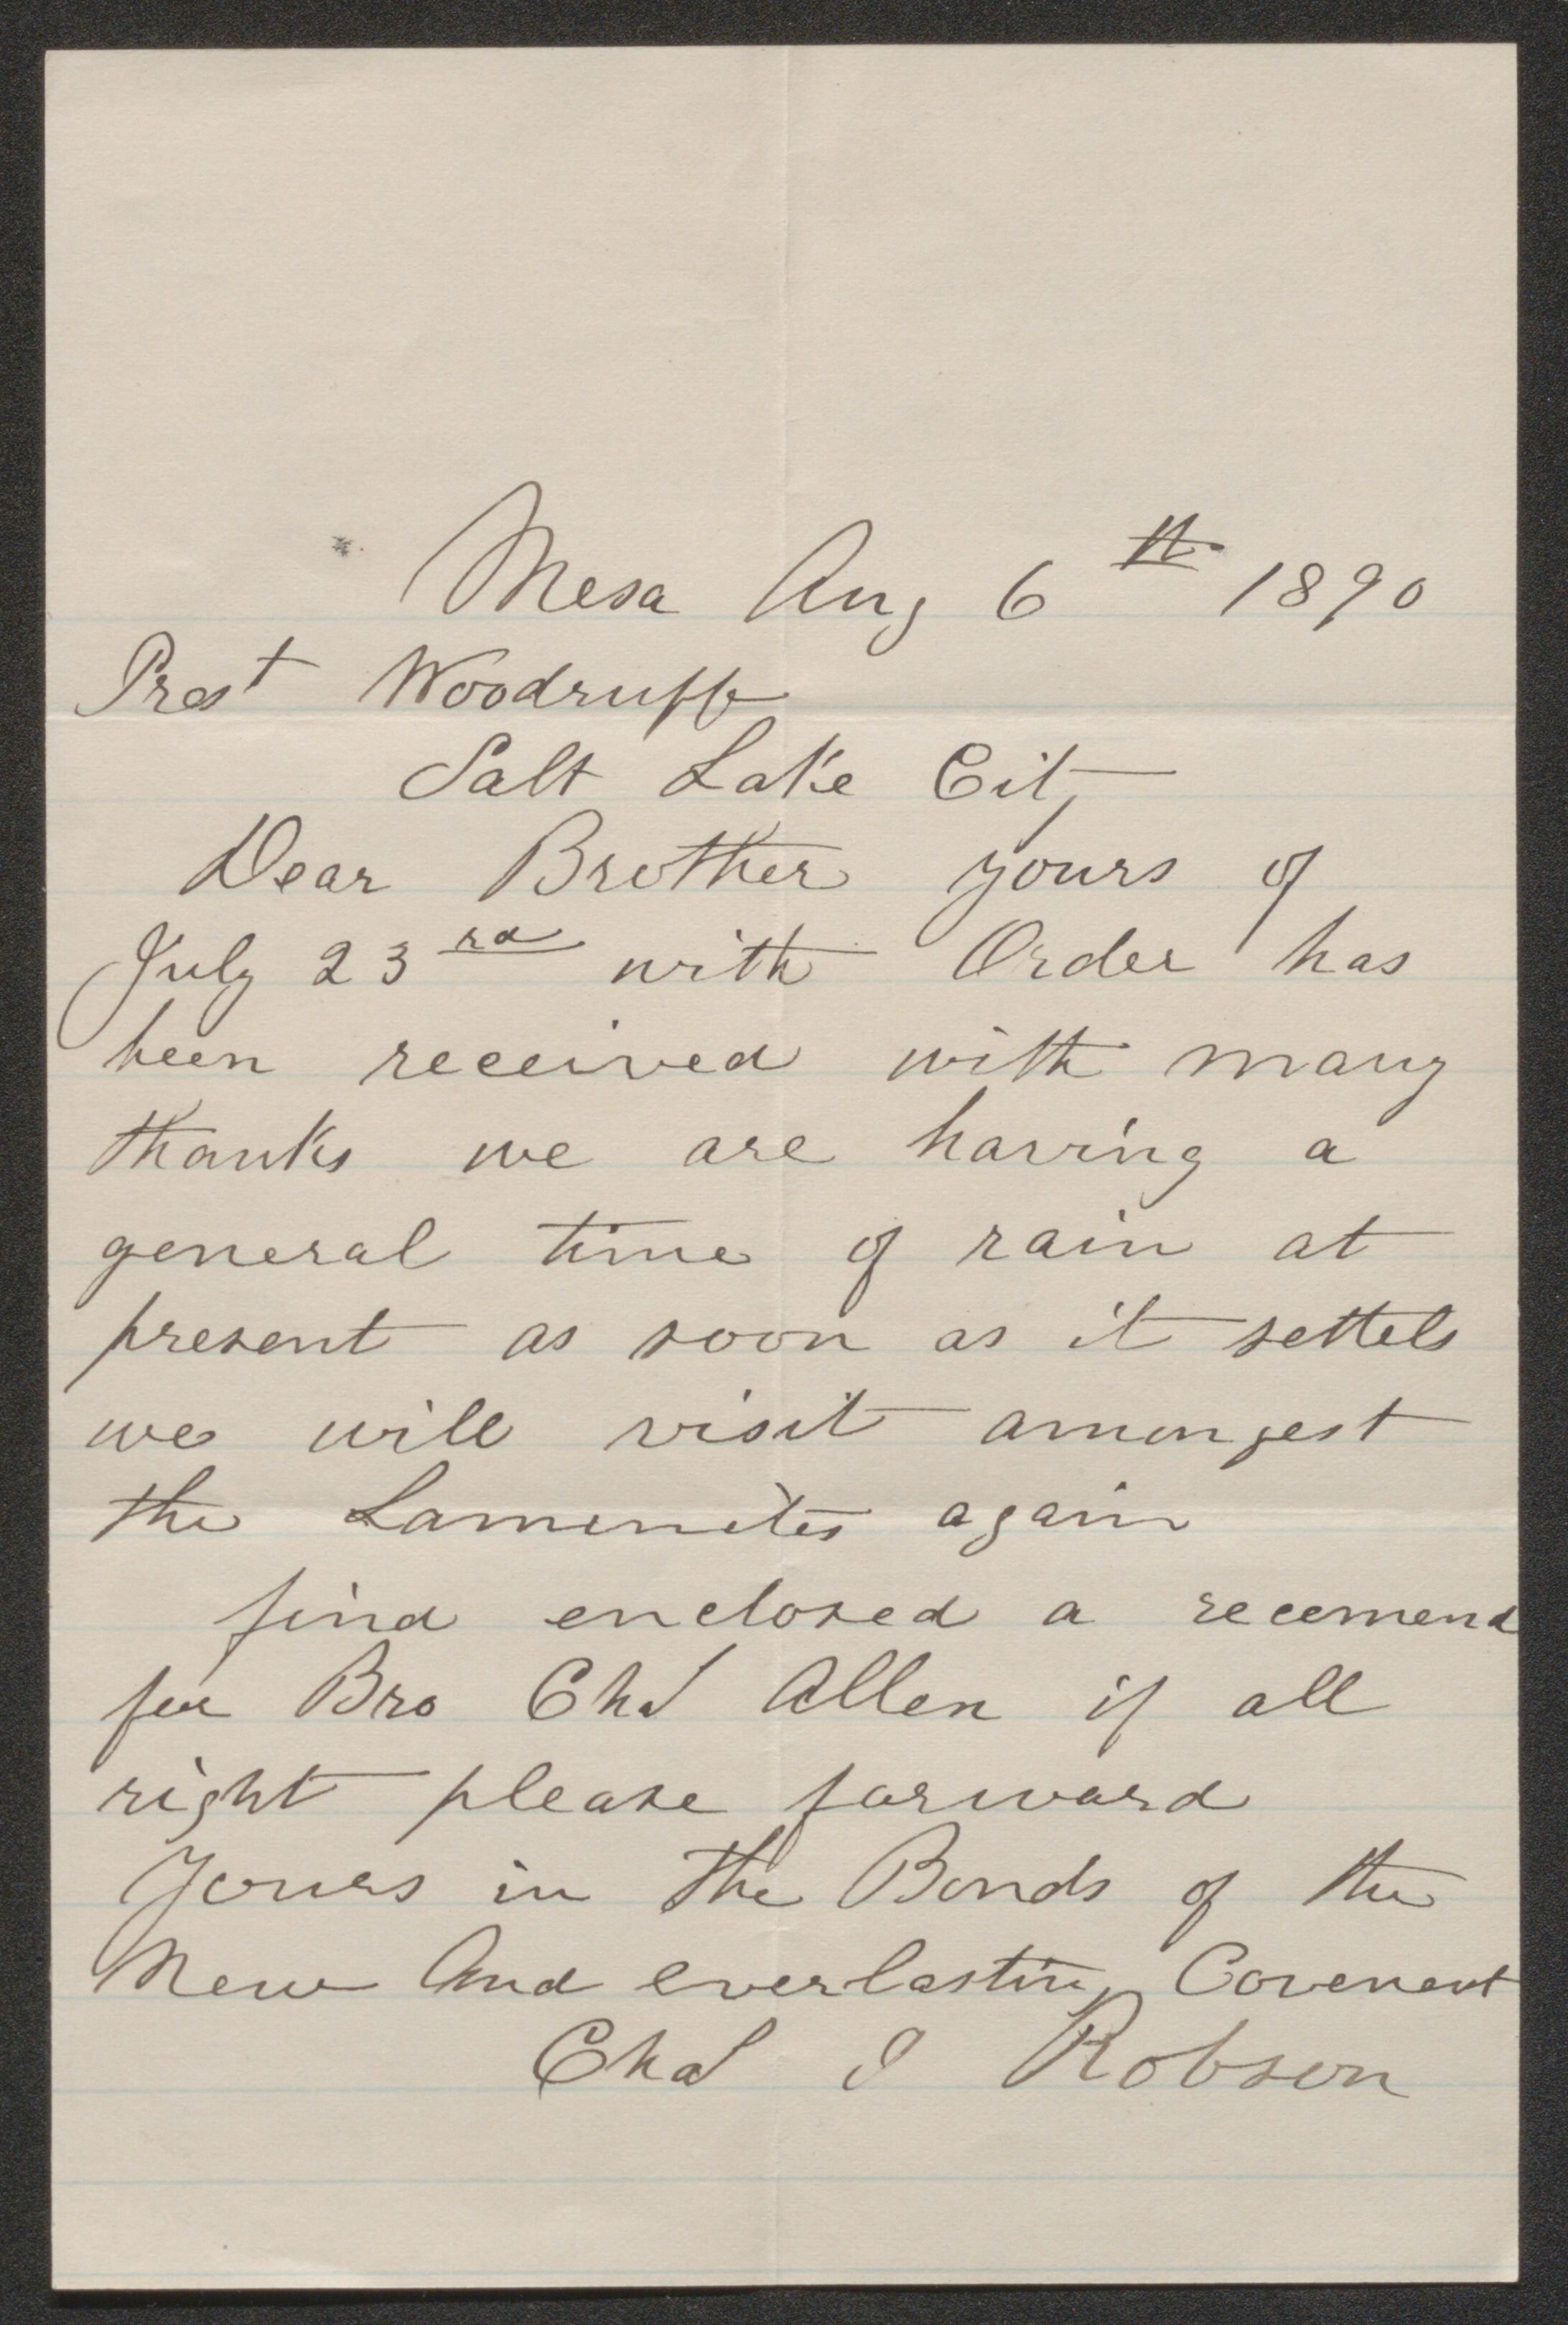 Mesa Aug 6th 1890
Prest Woodruff
Salt Lake City
Dear Brother yours of
July 23rd with Order has
been received with many
thanks we are having a
general time of rain at
present as soon as it settels
we will visit amongest
the Lamenites again
find enclosed a recemend
for Bro Chas Allen if all
right please forward
Yours in the Bonds of the
New And everlasting Covenent
Chas I Robson